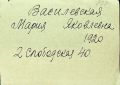 Василевская
Мария Яковлевна
1920
2 Слободская 40.